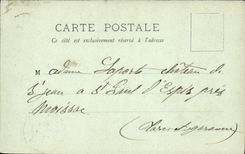 CARTE POSTALE
Ce côté est exclusivement réservé à l'adresse
M adame Laporte château de
St Jean à St Paul d'Espis près
Moissac
(Tarn et garonne)